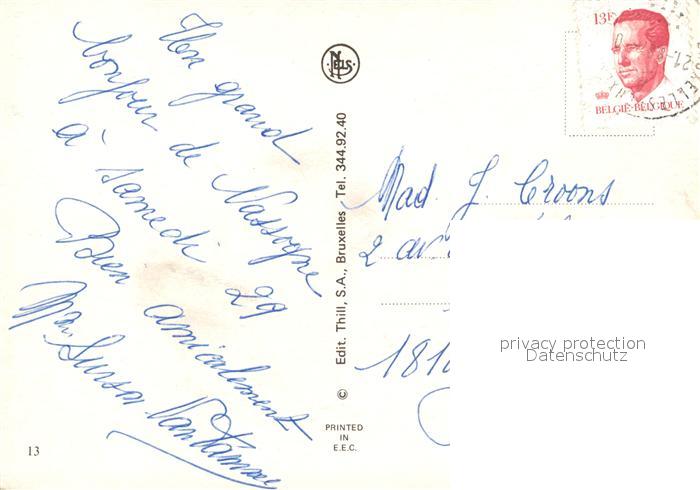 Un grand
bonjour de Nassogne
à samedi 29
Bien amicalement
NELS
Edit. Thill, S.A., Bruxelles Tel. 344.92.40
©
PRINTED
IN
E.E.C.
13
13F
BELGIË-BELGIQUE
Mad. J. Croons
2 av
181
privacy protection
Datenschutz